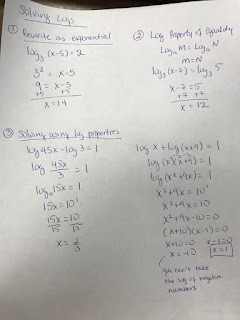 Solving Logs
① Rewrite as exponential
log₃ (x-5) = 2
3² = x-5
9 = x-5
+5 +5
x = 14
② Log Property of Equality
Log_b M = Log_b N
M = N
log₃ (x-7) = log₃ 5
x-7 = 5
+7 +7
x = 12
③ Solving using log properties
log 45x - log 3 = 1
log 45x/3 = 1
log₁₀ 15x = 1
15x = 10¹
15x/15 = 10/15
x = 2/3
log x + log (x+9) = 1
log (x)(x+9) = 1
log (x²+9x) = 1
x²+9x = 10¹
x²+9x = 10
x²+9x-10 = 0
(x+10)(x-1) = 0
x+10=0 x-1=0
x=-10 x=1
you can't take
the log of negative
numbers